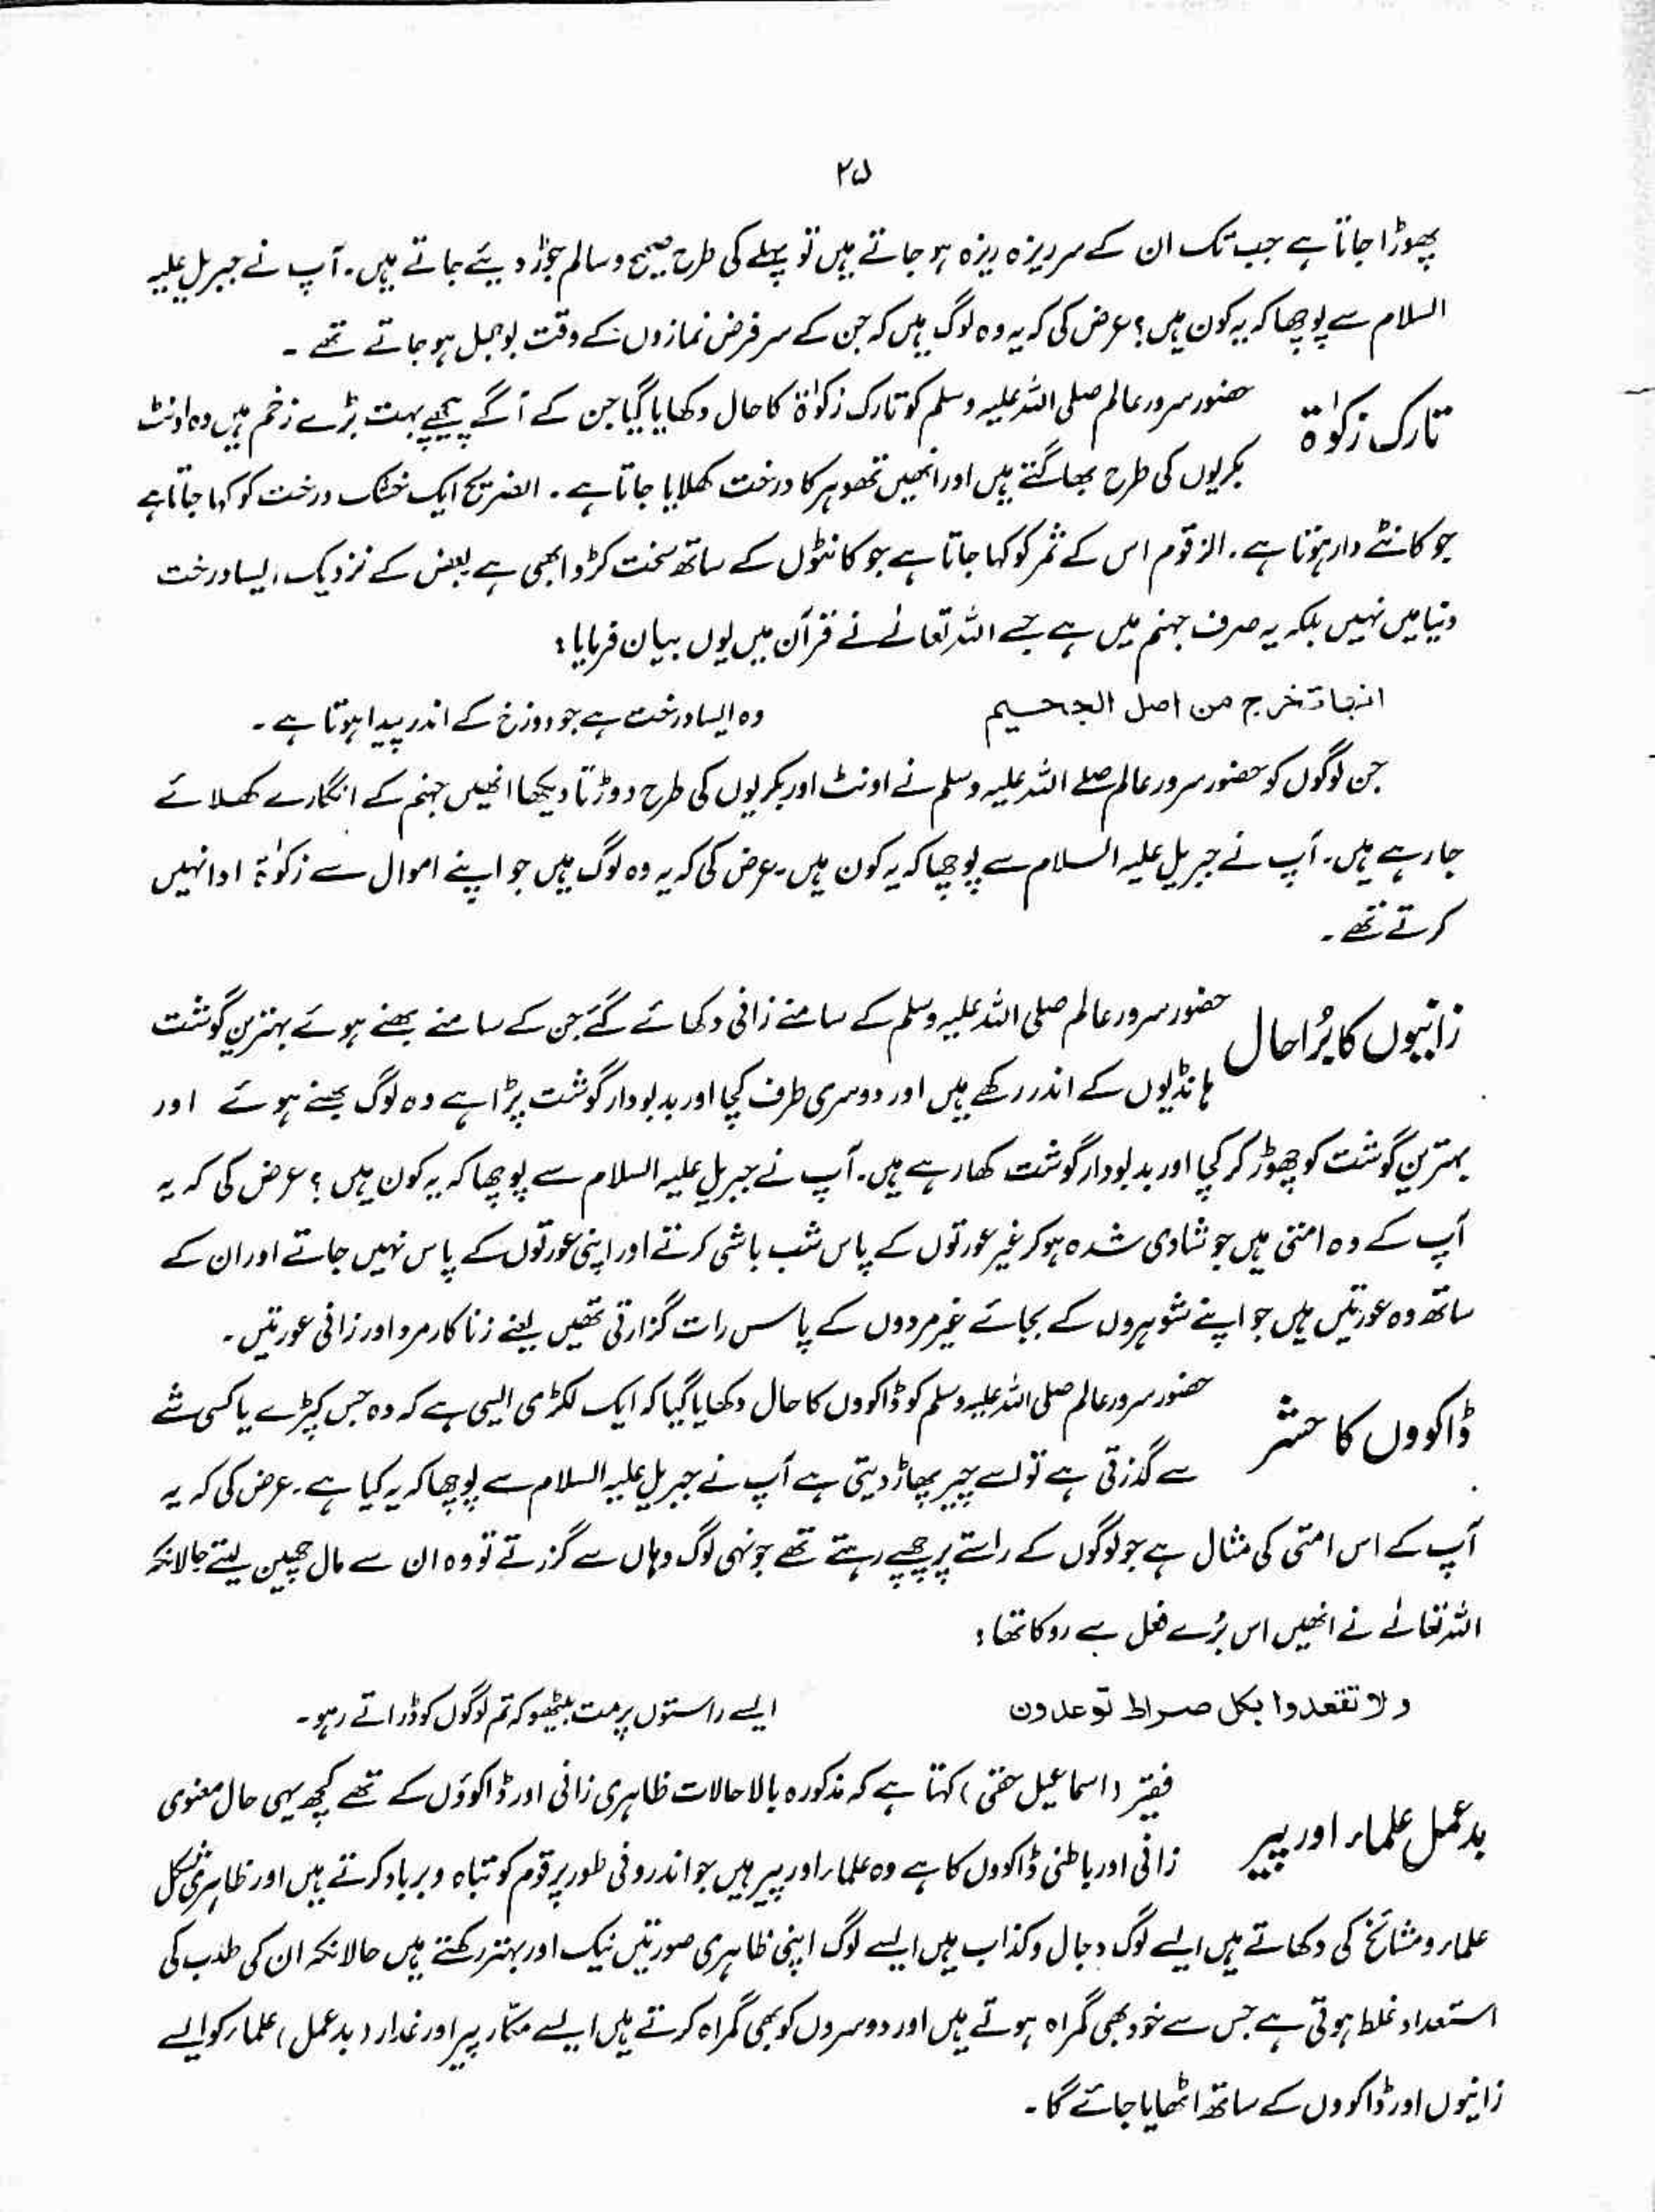 ۲۵
پھوڑا جاتا ہے جب تک ان کے سر ریزہ ریزہ ہو جاتے ہیں تو پہلے کی طرح صحیح و سالم جوڑ دیئے جاتے ہیں۔ آپ نے جبریل علیہ
السلام سے پوچھا کہ یہ کون ہیں؟ عرض کی کہ یہ وہ لوگ ہیں کہ جن کے سر فرض نمازوں کے وقت بوجھل ہو جاتے تھے ۔
تارک زکوٰۃ
حضور سرور عالم صلی اللہ علیہ وسلم کو تارک زکوٰۃ کا حال دکھایا گیا جن کے آگے پیچھے بہت بڑے زخم ہیں وہ اونٹ
بکریوں کی طرح بھاگتے ہیں اور انھیں تھوہر کا درخت کھلایا جاتا ہے ۔ الضریع ایک خشک درخت کو کہا جاتا ہے
جو کانٹے دار ہوتا ہے ۔ الزقوم اس کے ثمر کو کہا جاتا ہے جو کانٹوں کے ساتھ سخت کڑوا بھی ہے بعض کے نزدیک ایسا درخت
دنیا میں نہیں بلکہ یہ صرف جہنم میں ہے جسے اللہ تعالےٰ نے قرآن میں یوں بیان فرمایا :
انھا تخرج من اصل الجحیم
وہ ایسا درخت ہے جو دوزخ کے اندر پیدا ہوتا ہے ۔
جن لوگوں کو حضور سرور عالم صلے اللہ علیہ وسلم نے اونٹ اور بکریوں کی طرح دوڑتا دیکھا انھیں جہنم کے انگارے کھلائے
جا رہے ہیں۔ آپ نے جبریل علیہ السلام سے پوچھا کہ یہ کون ہیں۔ عرض کی کہ یہ وہ لوگ ہیں جو اپنے اموال سے زکوٰۃ ادا نہیں
کرتے تھے ۔
زانیوں کا بُرا حال
حضور سرور عالم صلی اللہ علیہ وسلم کے سامنے زانی دکھائے گئے جن کے سامنے بھنے ہوئے بہترین گوشت
ہانڈیوں کے اندر رکھے ہیں اور دوسری طرف کچا اور بدبودار گوشت پڑا ہے وہ لوگ بھنے ہوئے اور
بہترین گوشت کو چھوڑ کر کچا اور بدبودار گوشت کھا رہے ہیں۔ آپ نے جبریل علیہ السلام سے پوچھا کہ یہ کون ہیں ؟ عرض کی کہ یہ
آپ کے وہ امتی ہیں جو شادی شدہ ہو کر غیر عورتوں کے پاس شب باشی کرتے اور اپنی عورتوں کے پاس نہیں جاتے اور ان کے
ساتھ وہ عورتیں ہیں جو اپنے شوہروں کے بجائے غیر مردوں کے پاس رات گزارتی تھیں یعنے زنا کار مرد اور زانی عورتیں۔
ڈاکووں کا حشر
حضور سرور عالم صلی اللہ علیہ وسلم کو ڈاکووں کا حال دکھایا گیا کہ ایک لکڑی ایسی ہے کہ وہ جس کپڑے یا کسی شے
سے گذرتی ہے تو اسے چیر پھاڑ دیتی ہے آپ نے جبریل علیہ السلام سے پوچھا کہ یہ کیا ہے ۔ عرض کی کہ یہ
آپ کے اس امتی کی مثال ہے جو لوگوں کے راستے پر چھپے رہتے تھے جونہی لوگ وہاں سے گزرتے تو وہ ان سے مال چھین لیتے حالانکہ
اللہ تعالےٰ نے انھیں اس بُرے فعل سے روکا تھا :
ولا تقعدوا بکل صراط توعدون
ایسے راستوں پر مت بیٹھو کہ تم لوگوں کو ڈراتے رہو ۔
بدعمل علماء اور پیر
فقیر (اسماعیل حقی) کہتا ہے کہ مذکورہ بالا حالات ظاہری زانی اور ڈاکوؤں کے تھے کچھ یہی حال معنوی
زانی اور باطنی ڈاکووں کا ہے وہ علماء اور پیر ہیں جو اندرونی طور پر قوم کو تباہ و برباد کرتے ہیں اور ظاہری شکل
علماء و مشائخ کی دکھاتے ہیں ایسے لوگ دجال و کذاب ہیں ایسے لوگ اپنی ظاہری صورتیں نیک اور بہتر رکھتے ہیں حالانکہ ان کی طلب کی
استعداد غلط ہوتی ہے جس سے خود بھی گمراہ ہوتے ہیں اور دوسروں کو بھی گمراہ کرتے ہیں ایسے مکّار پیر اور غدار (بدعمل) علماء کو ایسے
زانیوں اور ڈاکووں کے ساتھ اٹھایا جائے گا ۔